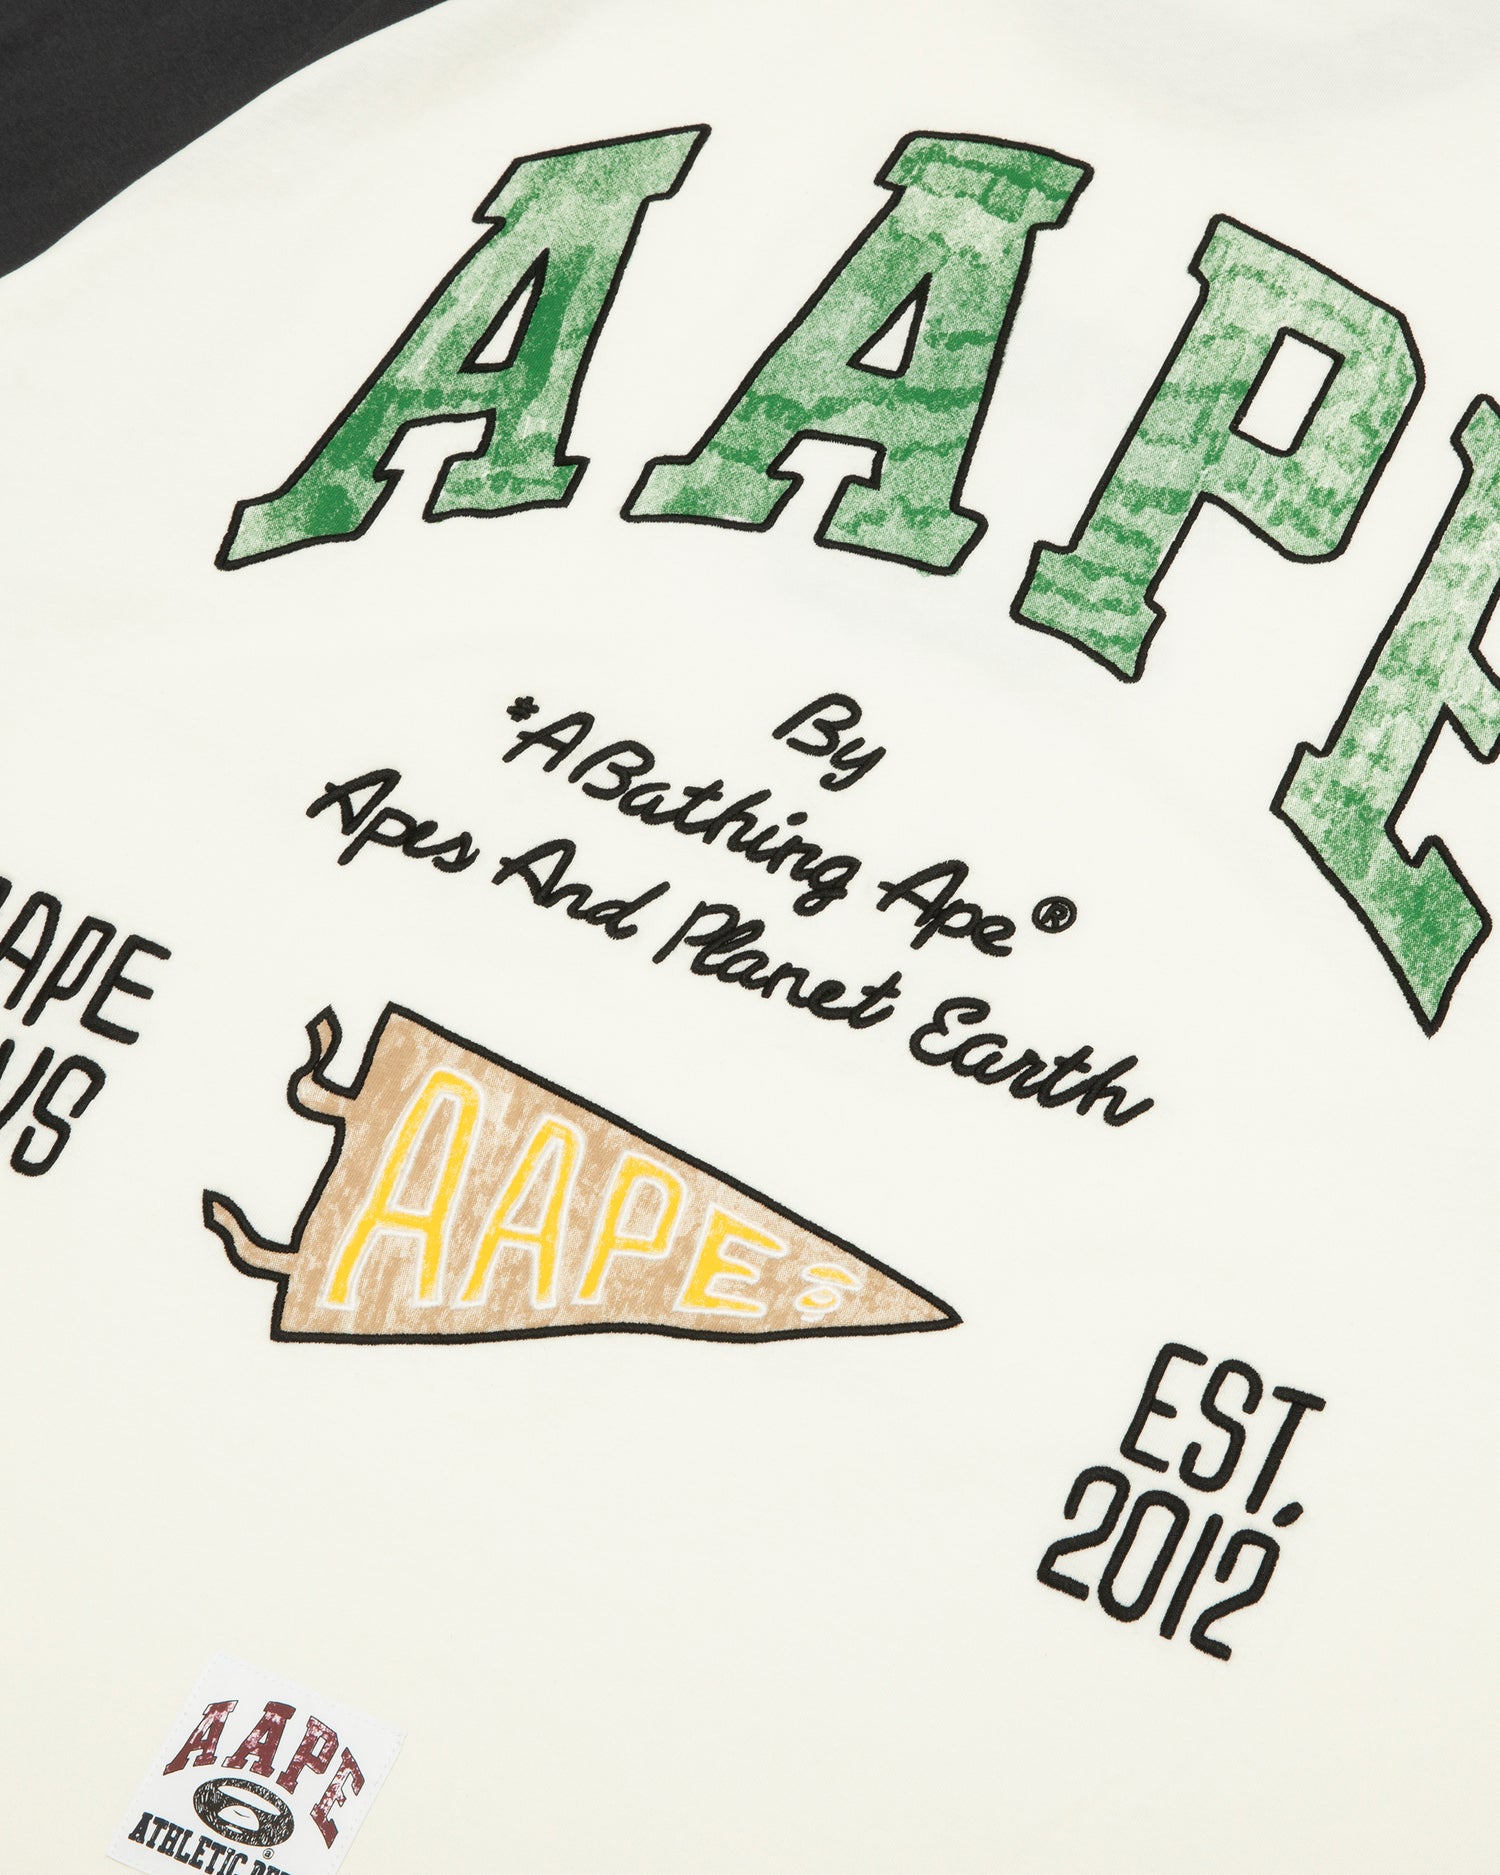 AAPE
By
*A Bathing Ape®
Apes And Planet Earth
AAPE
AAPE
EST.
2012
AAPE
ATHLETIC